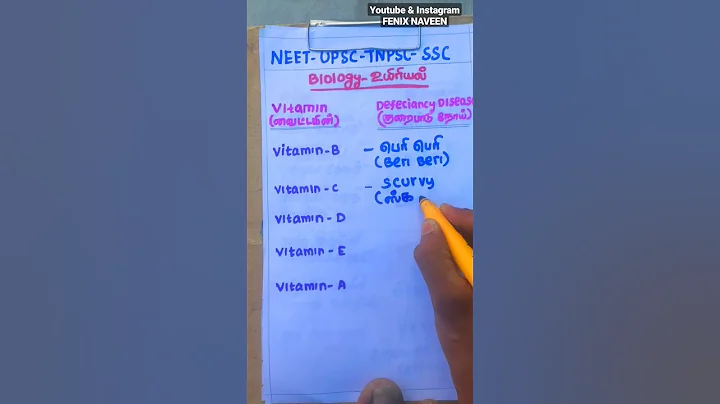 Youtube & Instagram
FENIX NAVEEN
NEET-UPSC-TNPSC-SSC
Biology-உயிரியல்
Vitamin Defeciancy Disease
(வைட்டமின்) (குறைபாடு நோய்)
Vitamin-B - பெரி பெரி
(Beri Beri)
Vitamin-C - Scurvy
(ஸ்க
Vitamin-D
Vitamin-E
Vitamin-A